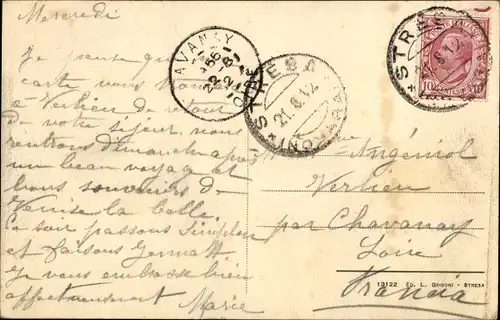 Mercredi
Je pense que
carte vous
à Verlieu de retour
de votre séjour, nous
rentrons dimanche après
un beau voyage et
bons souvenirs de
Venise la belle.
Ce soir passons Simplon
et faisons Zermatt
Je vous embrasse bien
affectueusement Marie
CHAVANAY
22 8 12
LOIRE
STRESA
21.8.12
STRESA
21.8.12
10
Angéniol
Verlieu
par Chavanay
Loire
Francia
13122 ED. L. GRIGONI - STRESA